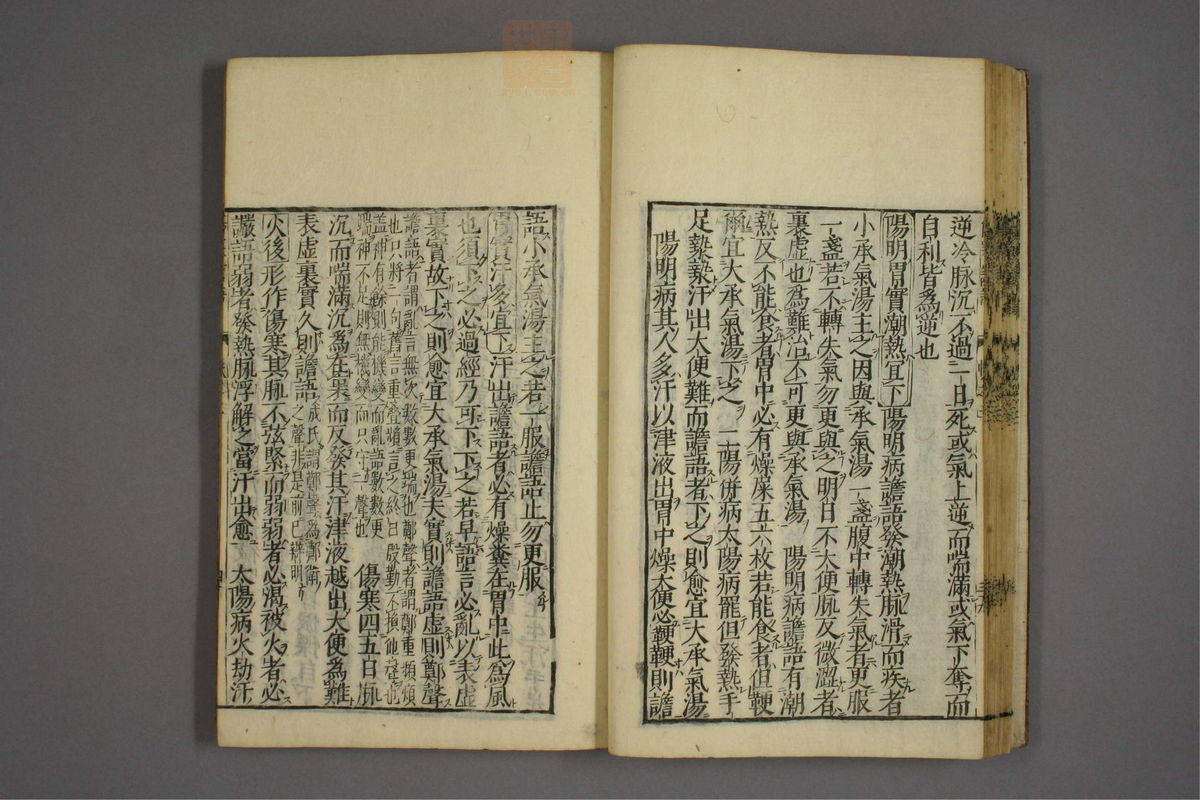 逆冷脉沉不過一日死或氣上逆而喘滿或氣下奪而
自利皆為逆也
陽明胃實潮熱宜下陽明病譫語發潮熱脉滑而疾者
小承氣湯主之因與承氣湯一盞腹中轉失氣者更服
一盞若不轉失氣勿更與之明日不大便脉反微澀者
裏虛也為難治不可更與承氣湯　陽明病譫語有潮
熱反不能食者胃中必有燥屎五六枚若能食者但鞕
爾宜大承氣湯下之　二陽併病太陽病罷但發熱手
足漐漐汗出大便難而譫語者下之則愈宜大承氣湯
陽明病其人多汗以津液出胃中燥大便必鞕鞕則譫
語小承氣湯主之若一服譫語止勿更服
胃實汗多宜下汗出譫語者必有燥糞在胃中此為風
也須下之必過經乃可下下之若早語言必亂以表虛
裏實故下之則愈宜大承氣湯夫實則譫語虛則鄭聲
譫語者謂亂言無次數數更端也鄭聲者謂鄭重頻煩
也只將一句舊言重疊頻言之終日殷勤不換他聲也
盖神有餘則能機變而亂語數數更
端神不足則無機變而只守一聲也　傷寒四五日脉
沉而喘滿沉為在裏而反發其汗津液越出大便為難
表虛裏實久則譫語成氏謂鄭聲為鄭衛
之聲非是前已辨明
火後形作傷寒其脉不弦緊而弱弱者必渴被火者必
譫語弱者發熱脉浮解之當汗出愈　太陽病火劫汗